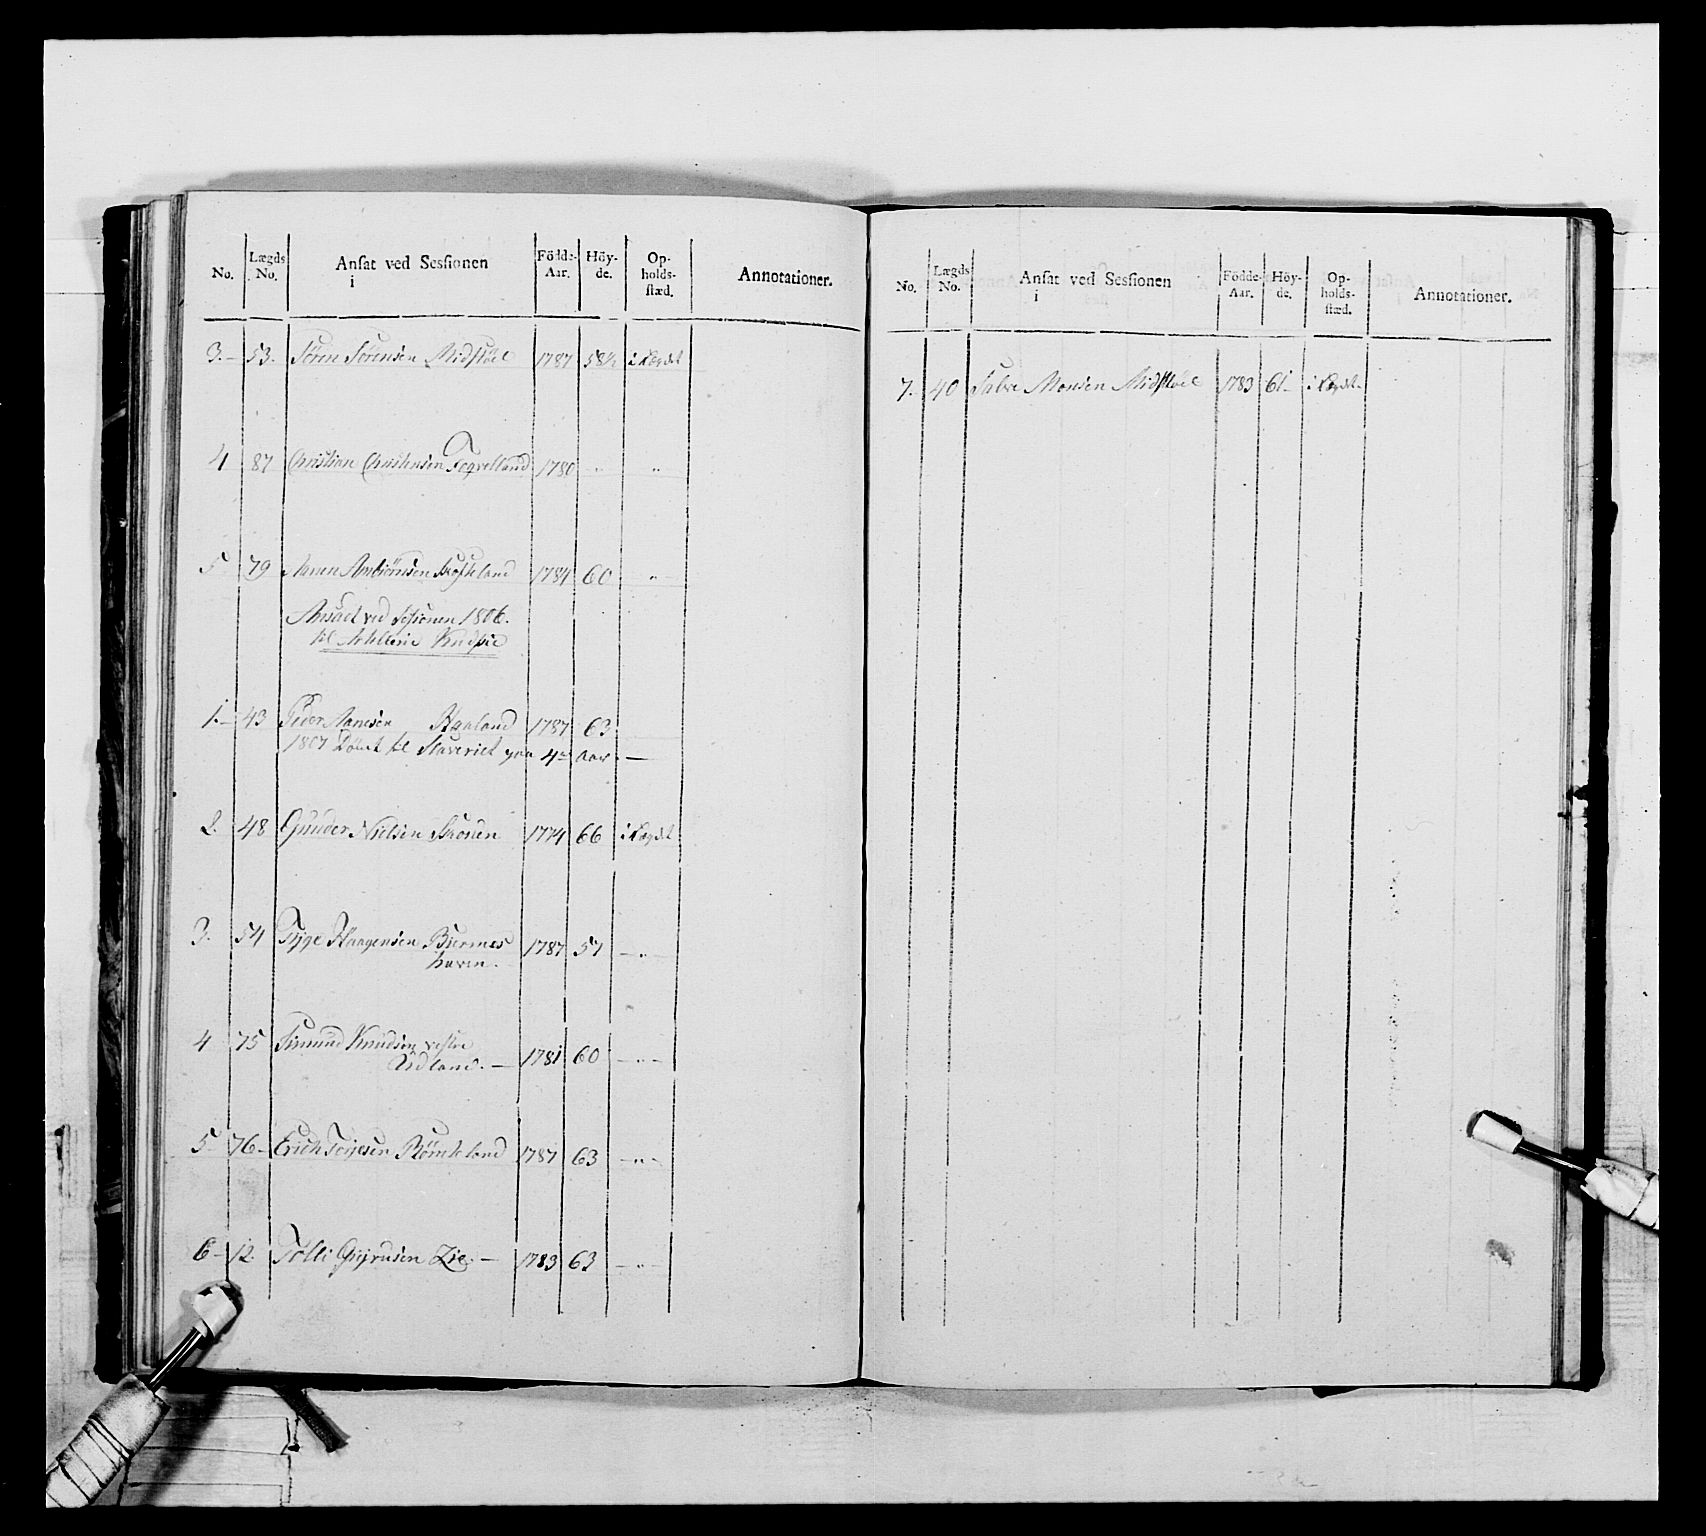 No. Lægds No. Ansat ved Sessionen i Födde Aar. Höy-de. Op-holds-stæd. Annotationer.
3.- 53. Sören Sörensen Midstöel 1787 58½ i Lægdet
4 87 Christian Christensen 1780 " "
5 79 Aanen Anbiörnsen 1784 60 "
Ansadt ved Sessionen 1806.
til Artillerie Kudske
1.- 43 Peder Aanesen Haaland 1787 63
1807 Dömt til Slaveriet paa 4re Aar. —
2. 48 Gunder Nielsen 1774 66 i Lægdet
3. 54 Tyge Haagensen Biermes 1787 57 — " —
haven.
4 75 Simund Knudsen vestre
Udland. — 1781 60 — " —
5 76- Erich Terjesen Römteland 1787 63 — " —
6- 12. Tolli Gjerulsen Lie. — 1783 63 — " —
No. Lægds No. Ansat ved Sessionen i Födde Aar. Höy-de. Op-holds-stæd. Annotationer.
7. 40 Salve Monsen Midstöel 1783 61- i Lægdet-